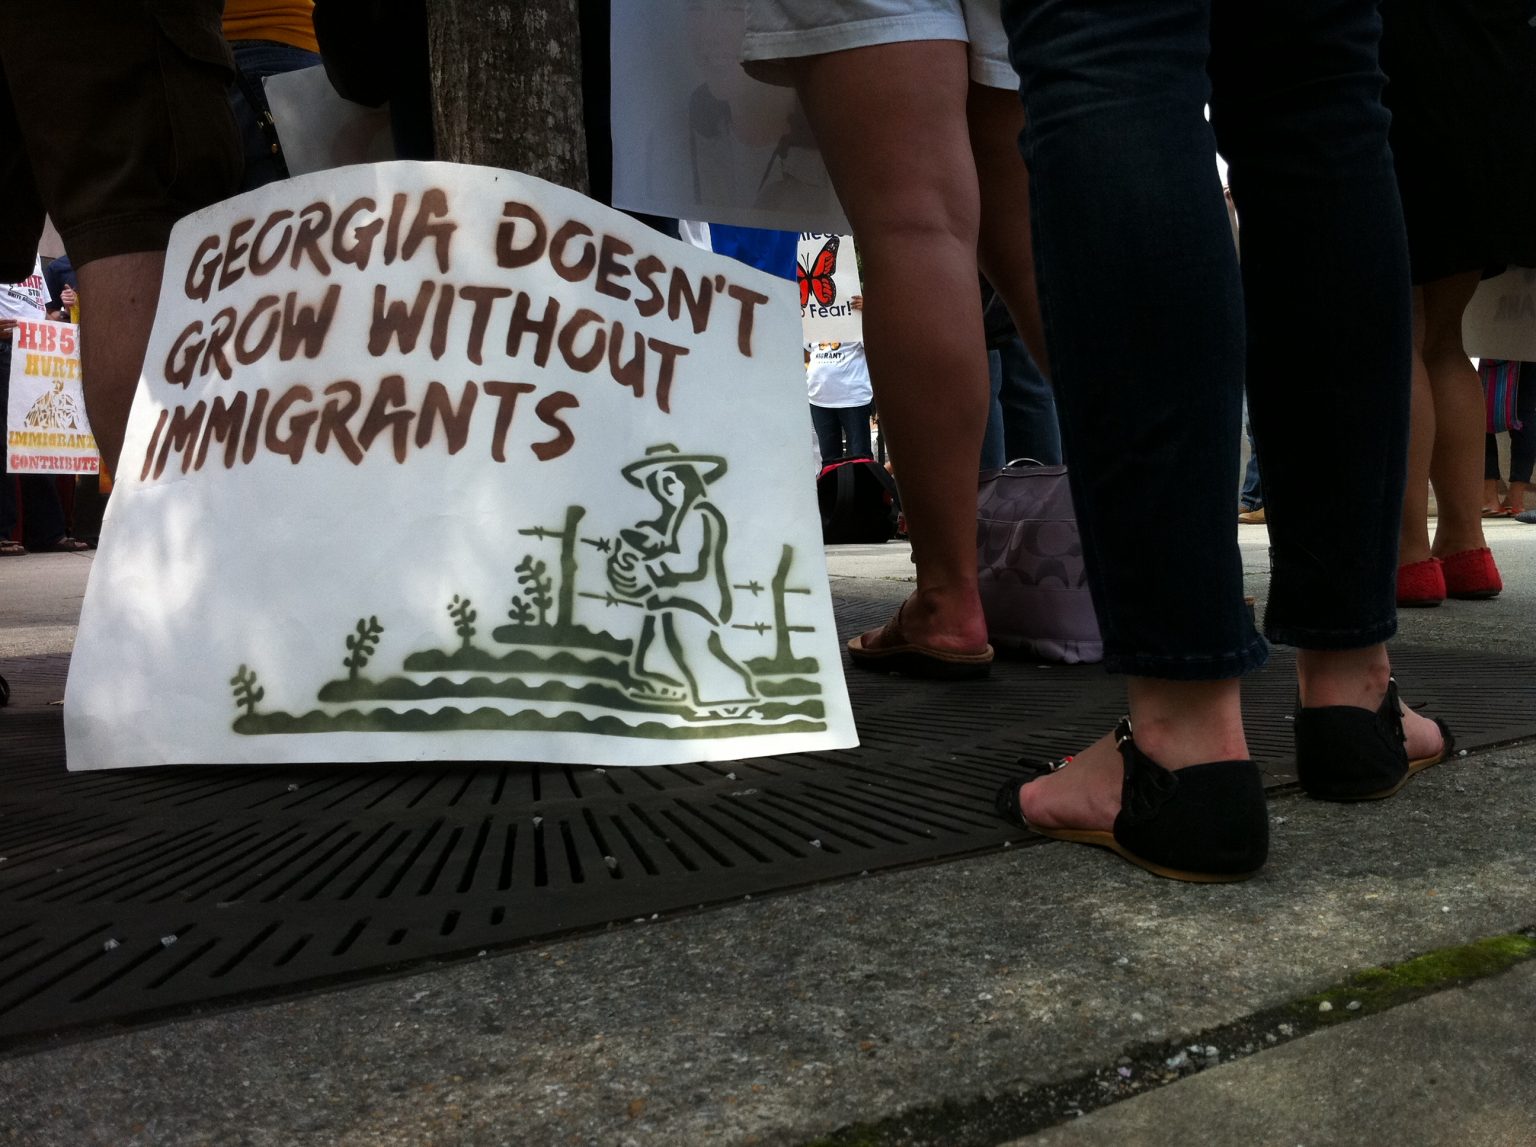 GEORGIA DOESN'T
GROW WITHOUT
IMMIGRANTS
HB5
HURT
IMMIGRANT
CONTRIBUTE
Fear!